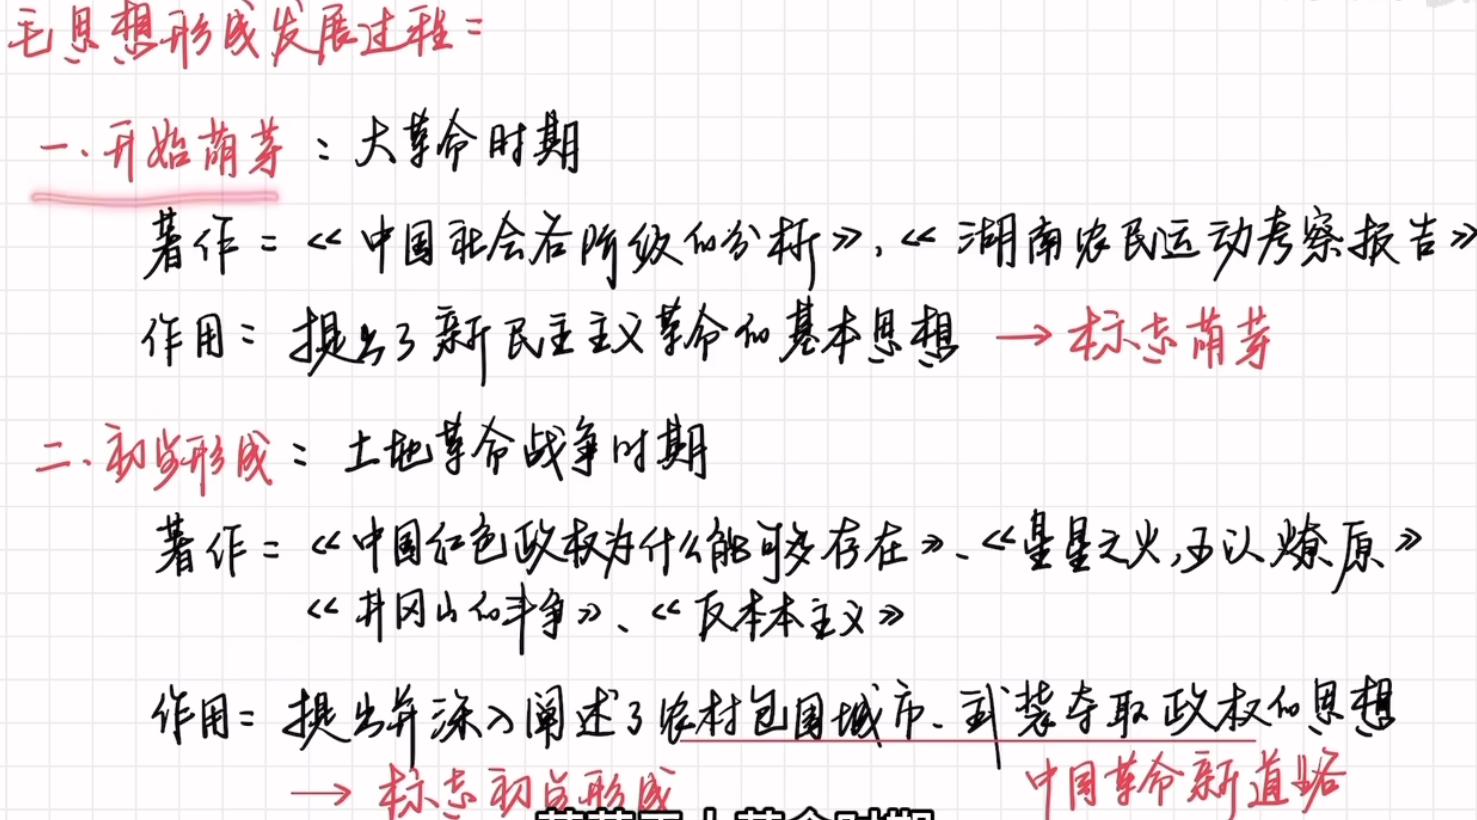 毛思想形成发展过程:
一、开始萌芽:大革命时期
著作:《中国社会各阶级的分析》,《湖南农民运动考察报告》
作用:提出了新民主主义革命的基本思想 → 标志萌芽
二、初步形成:土地革命战争时期
著作:《中国红色政权为什么能够存在》、《星星之火,可以燎原》
《井冈山的斗争》、《反对本本主义》
作用:提出并深入阐述了农村包围城市、武装夺取政权的思想
→ 标志初步形成 中国革命新道路